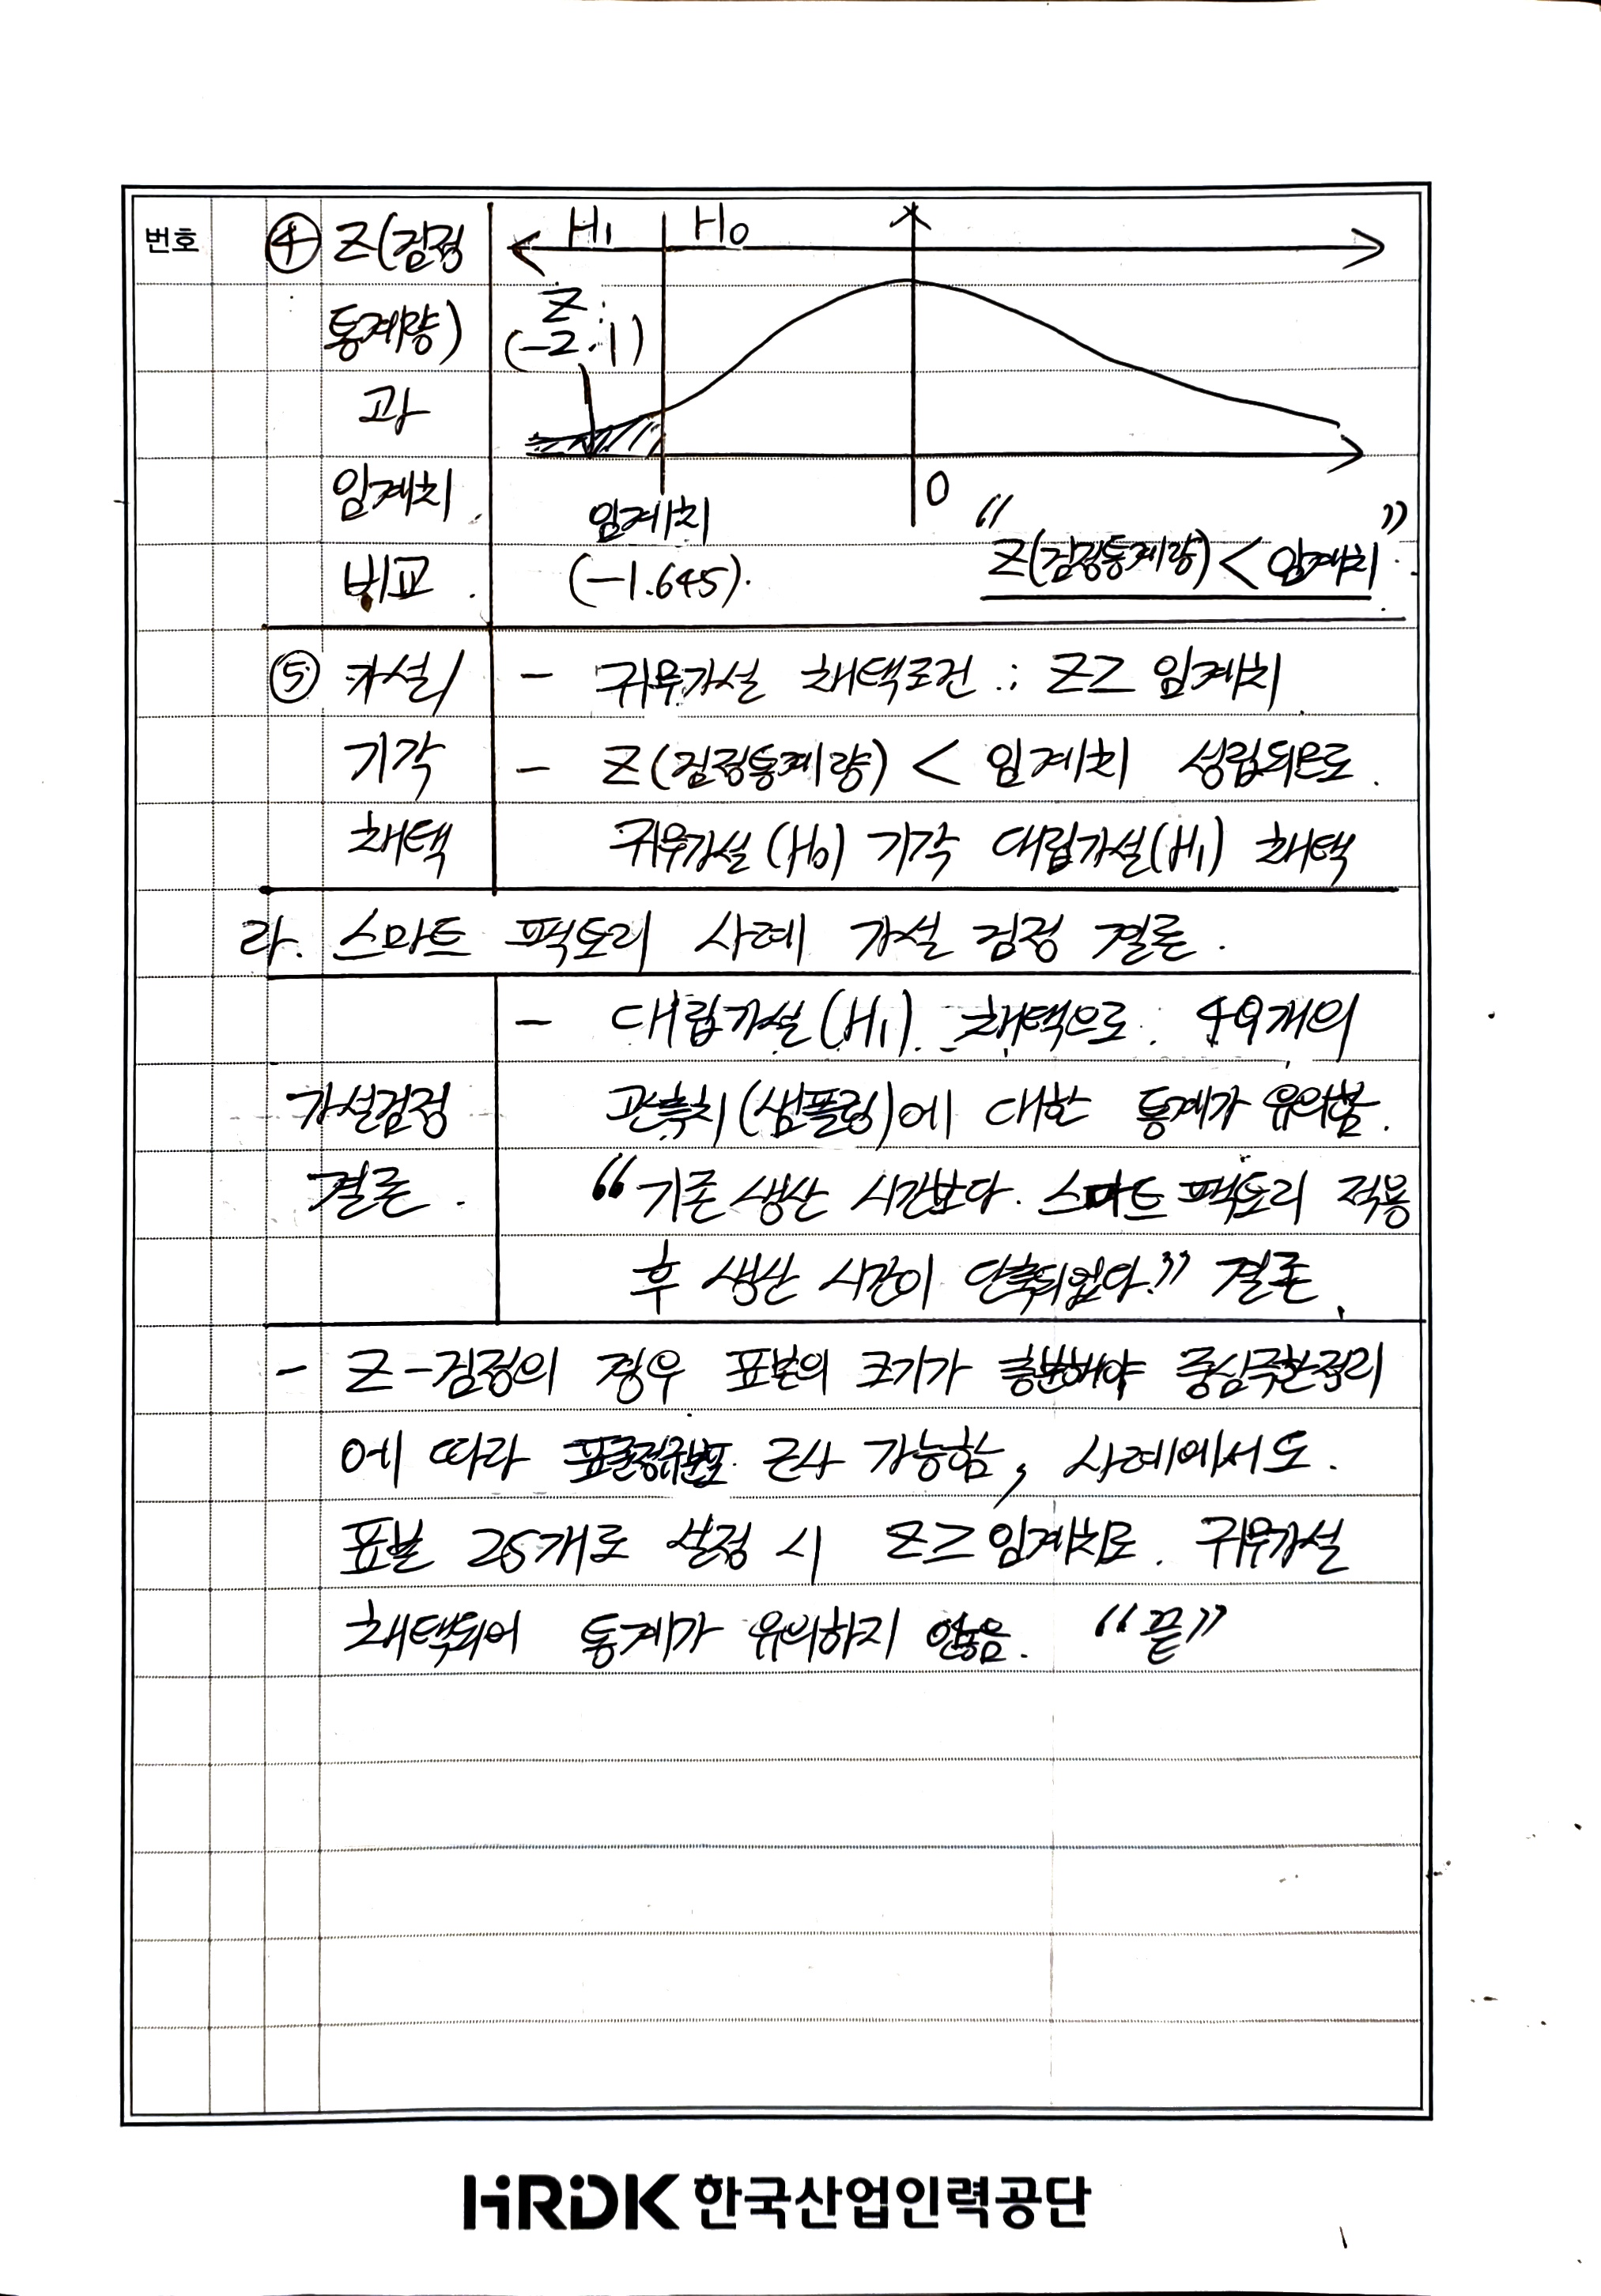 번호
④ Z(검정
통계량)
과
임계치
비교.
H1 H0
Z:
(-2.1)
임계치
(-1.645).
0
"Z(검정통계량) < 임계치"
⑤ 가설
기각
채택
- 귀무가설 채택조건 : Z≥ 임계치
- Z(검정통계량) < 임계치 성립되므로.
귀무가설(H0) 기각 대립가설(H1) 채택
라. 스마트 팩토리 사례 가설 검정 결론.
가설검정
결론.
- 대립가설(H1) 채택으로 49개의
관측치(샘플링)에 대한 통계가 유의함.
"기존 생산 시간보다. 스마트 팩토리 적용
후 생산 시간이 단축되었다." 결론.
- Z-검정의 경우 표본의 크기가 충분해야 중심극한정리
에 따라 표준정규분포 근사 가능함, 사례에서도.
표본 25개로 설정 시 Z≥임계치로. 귀무가설
채택되어 통계가 유의하지 않음. "끝"
HRDK 한국산업인력공단